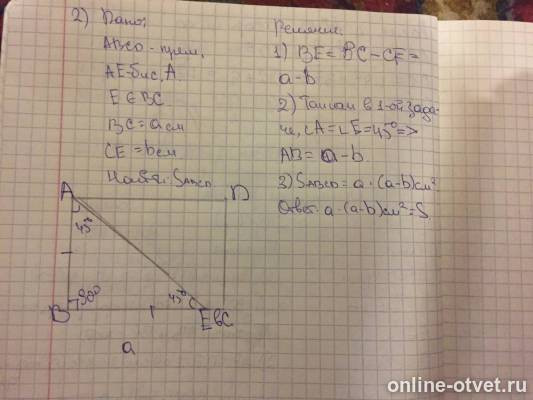 2) Дано:
ABCD - прям.
AE - бис. A
E ∈ BC
BC = a см
CE = b см
Найти: SABCD
Решение:
1) BE = BC - CE =
a - b
2) Так как в 1-ой зада-
че, ∠A = ∠E = 45° =>
AB = a - b
3) SABCD = a · (a-b) см²
Ответ: a · (a-b) см² = S
A D
45°
90° 45°
B E b C
a
online-otvet.ru